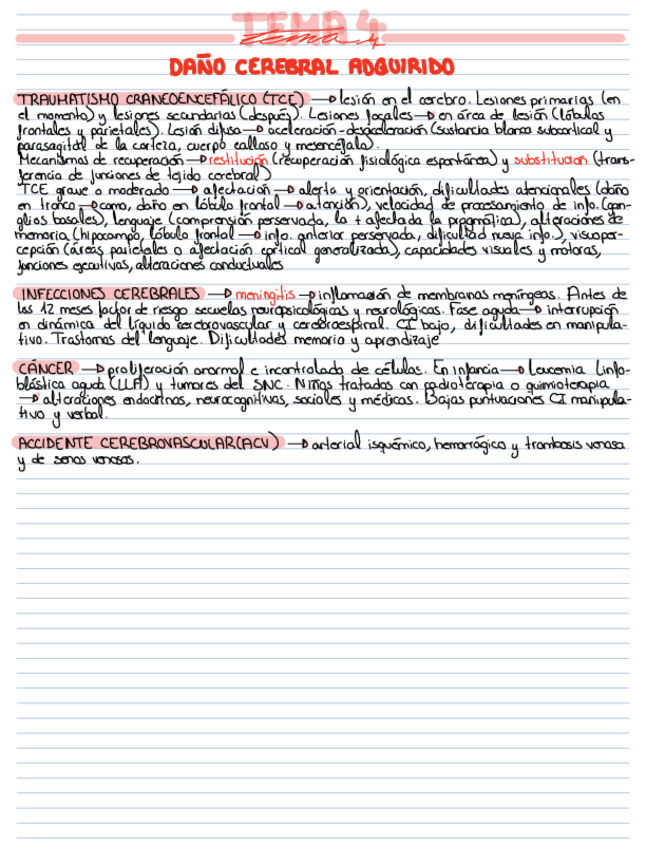 TEMA 4
tema 4
DAÑO CEREBRAL ADQUIRIDO
TRAUMATISMO CRANEOENCEFÁLICO (TCE) → lesión en el cerebro. Lesiones primarias (en
el momento) y lesiones secundarias (después). Lesiones focales → en área de lesión (lóbulos
frontales y parietales). Lesión difusa → aceleración-desaceleración (sustancia blanca subcortical y
parasagital de la corteza, cuerpo calloso y mesencéfalo).
Mecanismos de recuperación → restitución (recuperación fisiológica espontánea) y substitución (trans-
ferencia de funciones de tejido cerebral)
TCE grave o moderado → afectación → alerta y orientación, dificultades atencionales (daño
en tronco → coma, daño en lóbulo frontal → atención), velocidad de procesamiento de info. (gan-
glios basales), lenguaje (comprensión perservada, la + afectada la pragmática), alteraciones de
memoria (hipocampo, lóbulo frontal → info. anterior perservada, dificultad nueva info.), visoper-
cepción (áreas parietales o afectación cortical generalizada), capacidades visuales y motoras,
funciones ejecutivas, alteraciones conductuales
INFECCIONES CEREBRALES → meningitis → inflamación de membranas meníngeas. Antes de
los 12 meses factor de riesgo secuelas neuropsicológicas y neurológicas. Fase aguda → interrupción
en dinámica del líquido cerebrovascular y cerebroespinal. CI bajo, dificultades en manipula-
tivo. Trastornos del lenguaje. Dificultades memoria y aprendizaje
CÁNCER → proliferación anormal e incontrolada de células. En infancia → leucemia linfo-
blástica aguda (LLA) y tumores del SNC. Niños tratados con radioterapia o quimioterapia
→ alteraciones endocrinas, neurocognitivas, sociales y médicas. Bajas puntuaciones CI manipula-
tivo y verbal.
ACCIDENTE CEREBROVASCULAR (ACV) → arterial isquémico, hemorrágico y trombosis venosa
y de senos venosos.